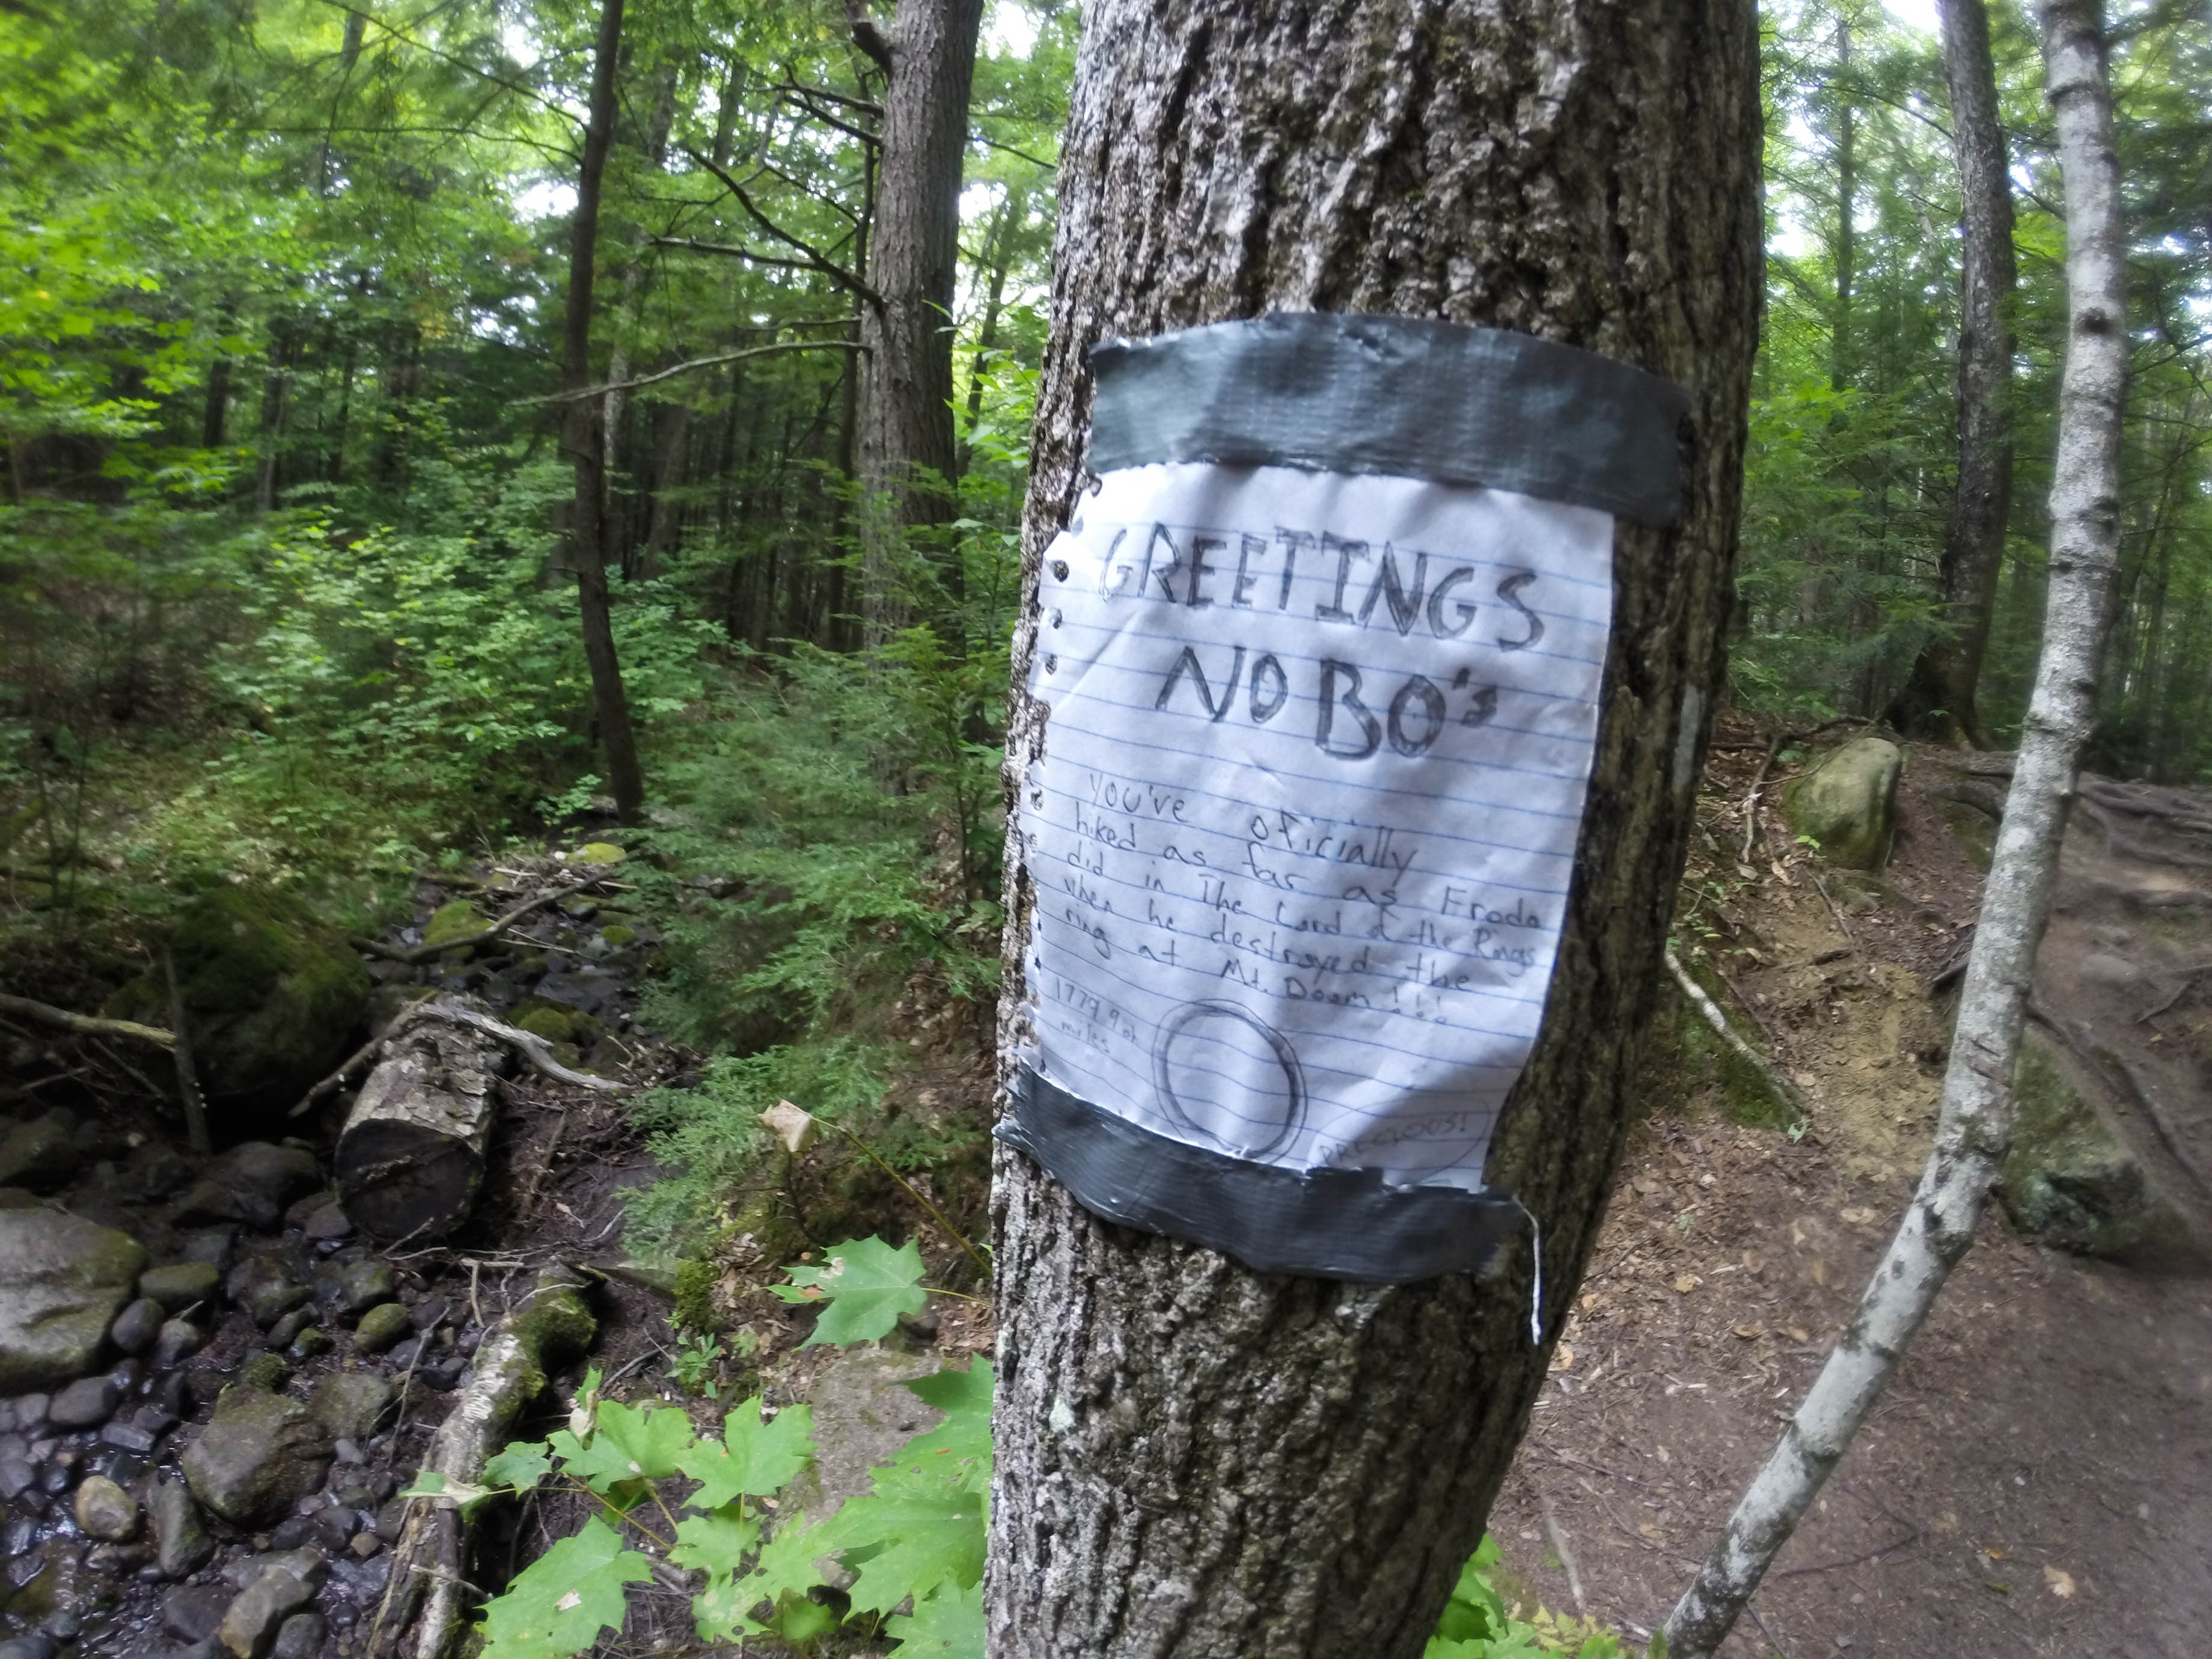 GREETINGS
NOBO's
You've oficially
hiked as far as Frodo
did in The Lord of the Rings
when he destroyed the
ring at Mt. Doom!!!
1779
miles
PRECIOUS!